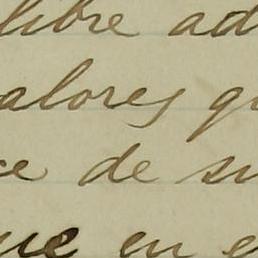 libre ad
alores qu
ce de su
ue en e